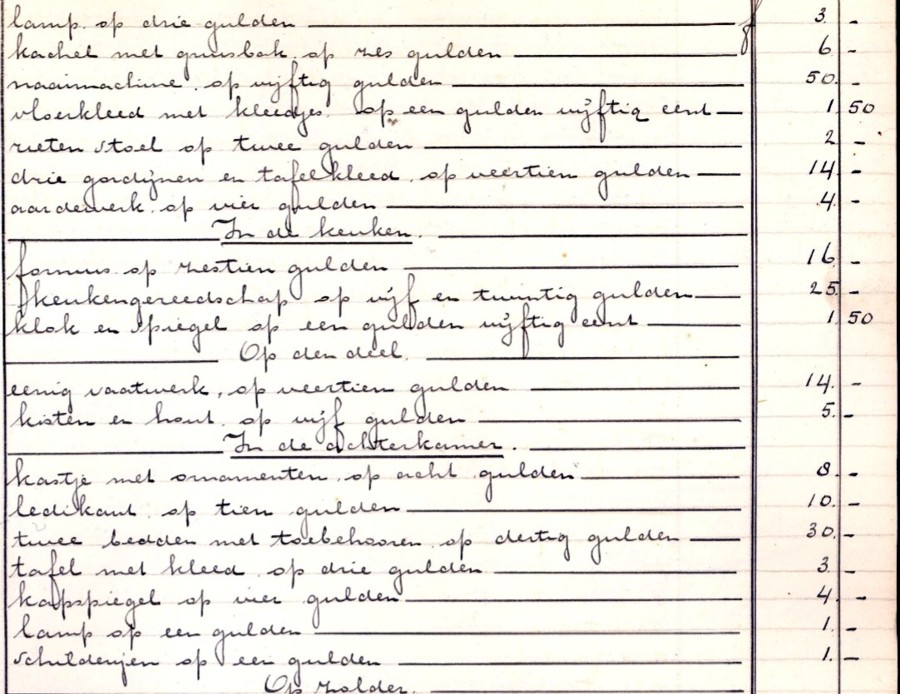 lamp. op drie gulden f 3. -
kachel met op zes gulden 6 -
naaimachine. op vijftig gulden 50. -
vloerkleed met kleedjes. op een gulden vijftig cent 1. 50
rieten stoel op twee gulden 2 -
drie gordijnen en tafelkleed. op veertien gulden 14. -
aardewerk. op vier gulden 4. -
In de keuken.
fornuis. op zestien gulden 16. -
keukengereedschap op vijf en twintig gulden 25. -
klok en spiegel op een gulden vijftig cent 1. 50
Op den deel.
eenig vaatwerk, op veertien gulden 14. -
kisten en hout. op vijf gulden 5. -
In de achterkamer.
kastje met ornamenten. op acht gulden 8. -
ledikant. op tien gulden 10. -
twee bedden met toebehooren. op dertig gulden 30. -
tafel met kleed. op drie gulden 3. -
kapspiegel op vier gulden 4. -
lamp op een gulden 1. -
schilderijen op een gulden 1. -
Op zolder.